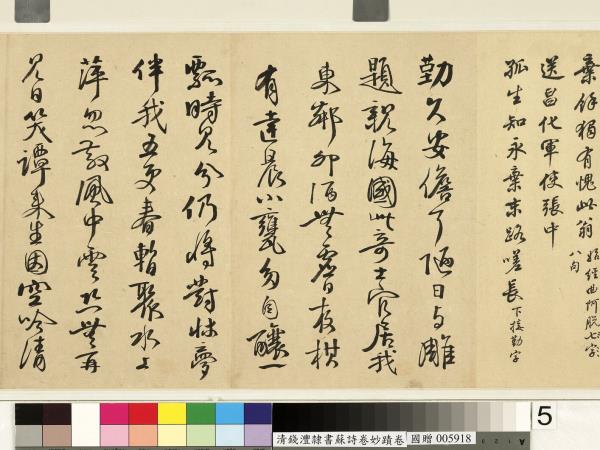 棄餘猶有愧此翁 始經曲阿脫七字
八句
送昌化軍使張中
孤生知永棄末路嗟長 下接勤字
勤久安儋耳陋日与雕
題親海國此奇士官居我
東鄰卯酒無虛夜棋
有達晨小甕多自釀一
瓢時見分仍將對牀夢
伴我五更春暫聚水上
萍忽散風中雲恐無再
見日笑譚來生因空吟清
5
清錢灃隸書蘇詩卷妙蹟卷 國贈 005918